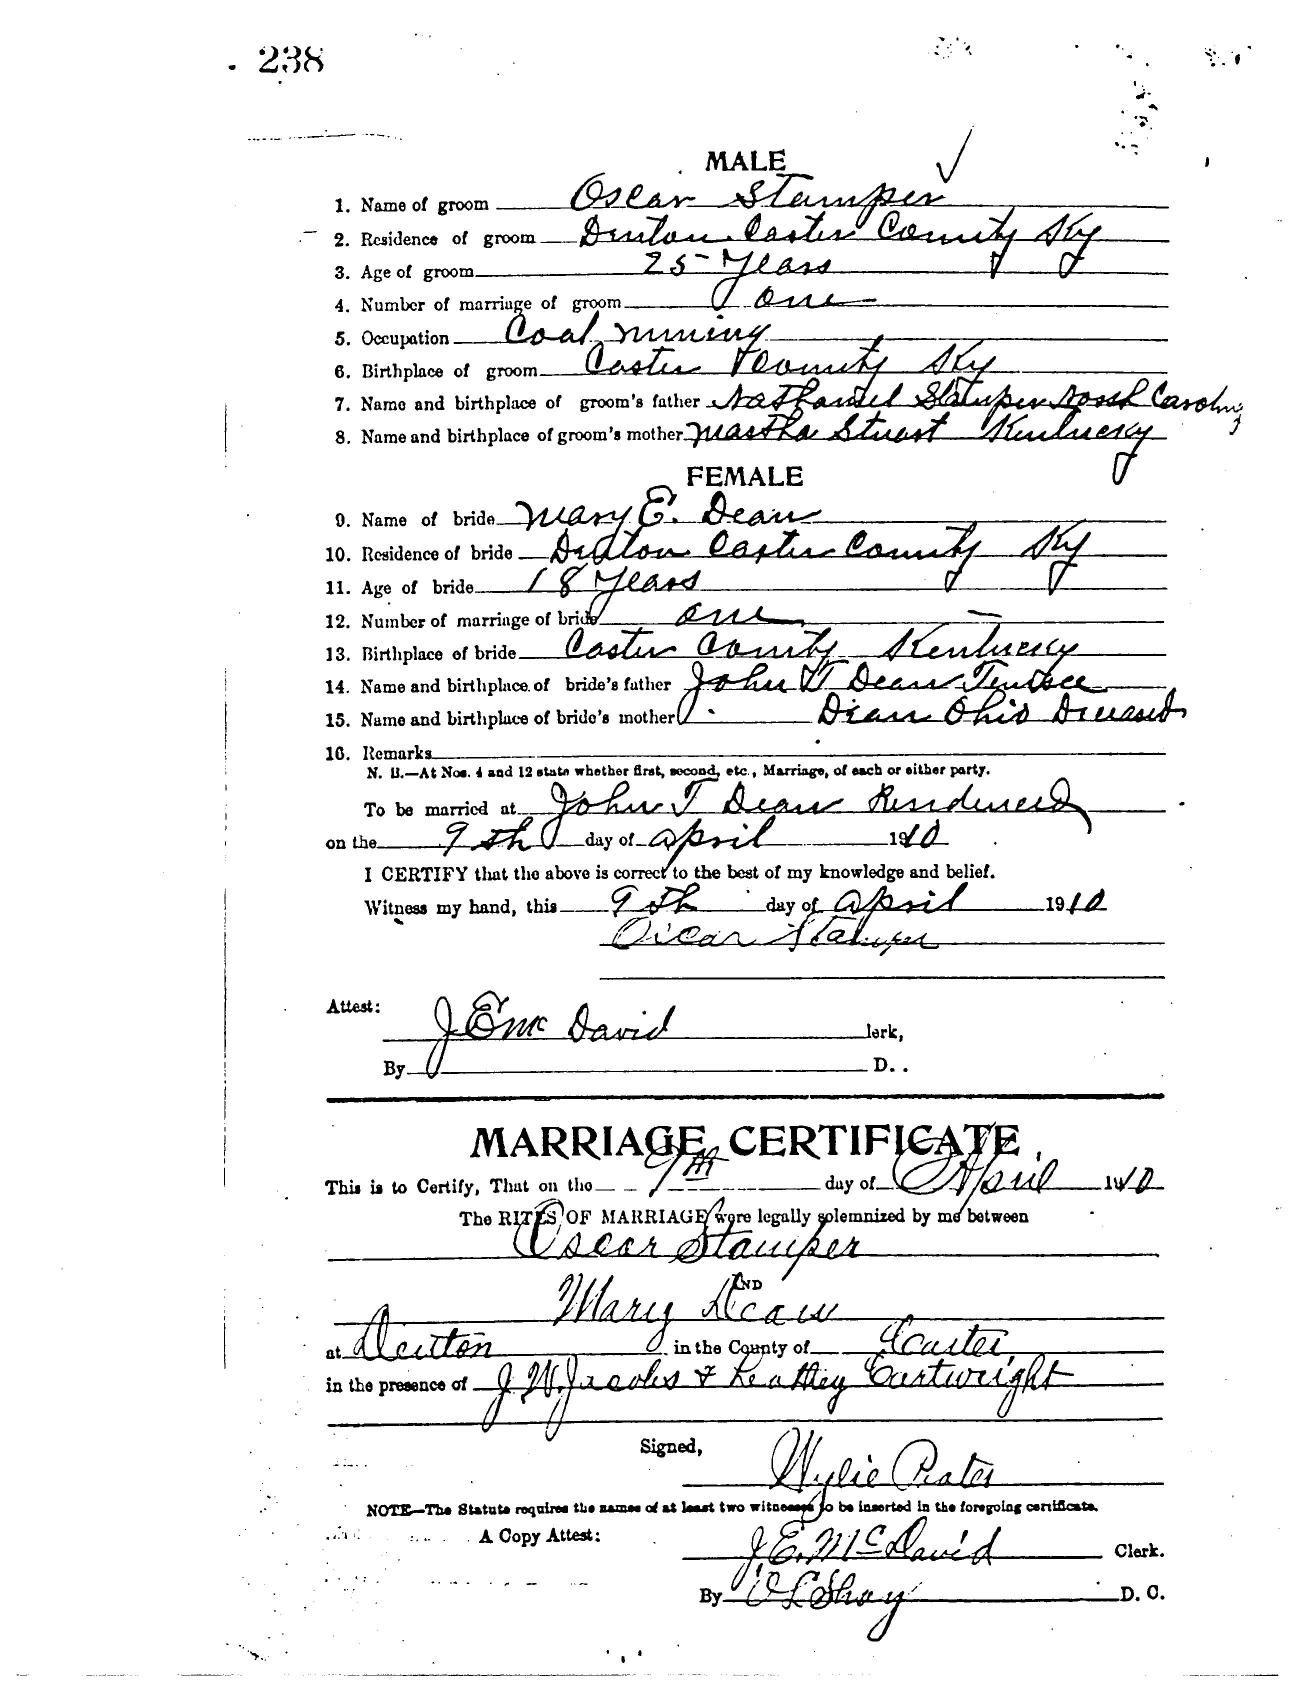 238
MALE
1. Name of groom Oscar Stamper
2. Residence of groom Denton Carter County Ky
3. Age of groom 25 Years
4. Number of marriage of groom one
5. Occupation Coal mining
6. Birthplace of groom Carter County Ky
7. Name and birthplace of groom's father Nathaniel Stamper North Carolina
8. Name and birthplace of groom's mother Martha Stuart Kentucky
FEMALE
9. Name of bride Mary E. Dean
10. Residence of bride Denton Carter County Ky
11. Age of bride 18 Years
12. Number of marriage of bride one
13. Birthplace of bride Carter County Kentucky
14. Name and birthplace of bride's father John T Dean
15. Name and birthplace of bride's mother Dean Ohio Deceased
16. Remarks
N. B.—At Nos. 4 and 12 state whether first, second, etc., Marriage, of each or either party.
To be married at John T Dean
on the 9th day of April 1910
I CERTIFY that the above is correct to the best of my knowledge and belief.
Witness my hand, this 9th day of April 1910
Oscar Stamper
Attest:
J E Mc David lerk,
By D. .
MARRIAGE CERTIFICATE
This is to Certify, That on the 9th day of April 1910
The RITES OF MARRIAGE were legally solemnized by me between
Oscar Stamper
AND
Mary Dean
at Denton in the County of Carter,
in the presence of J. W. Jacobs & Cartwright
Signed,
Wylie Prater
NOTE—The Statute requires the names of at least two witnesses to be inserted in the foregoing certificate.
A Copy Attest:
J. E. McDavid Clerk.
By Shay D. C.